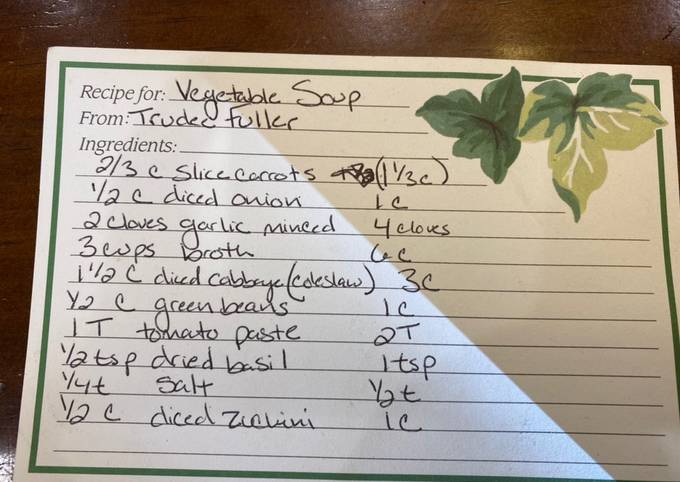 Recipe for: Vegetable Soup
From: Trudee Fuller
Ingredients:
2/3 c Slice carrots (1 1/3 c)
1/2 c diced onion 1 c
2 cloves garlic minced 4 cloves
3 cups broth 6c
1 1/2 C diced cabbage (coleslaw) 3c
1/2 C green beans 1C
1 T tomato paste 2T
1/2 tsp dried basil 1 tsp
1/4 t Salt 1/2 t
1/2 c diced zuchini 1C